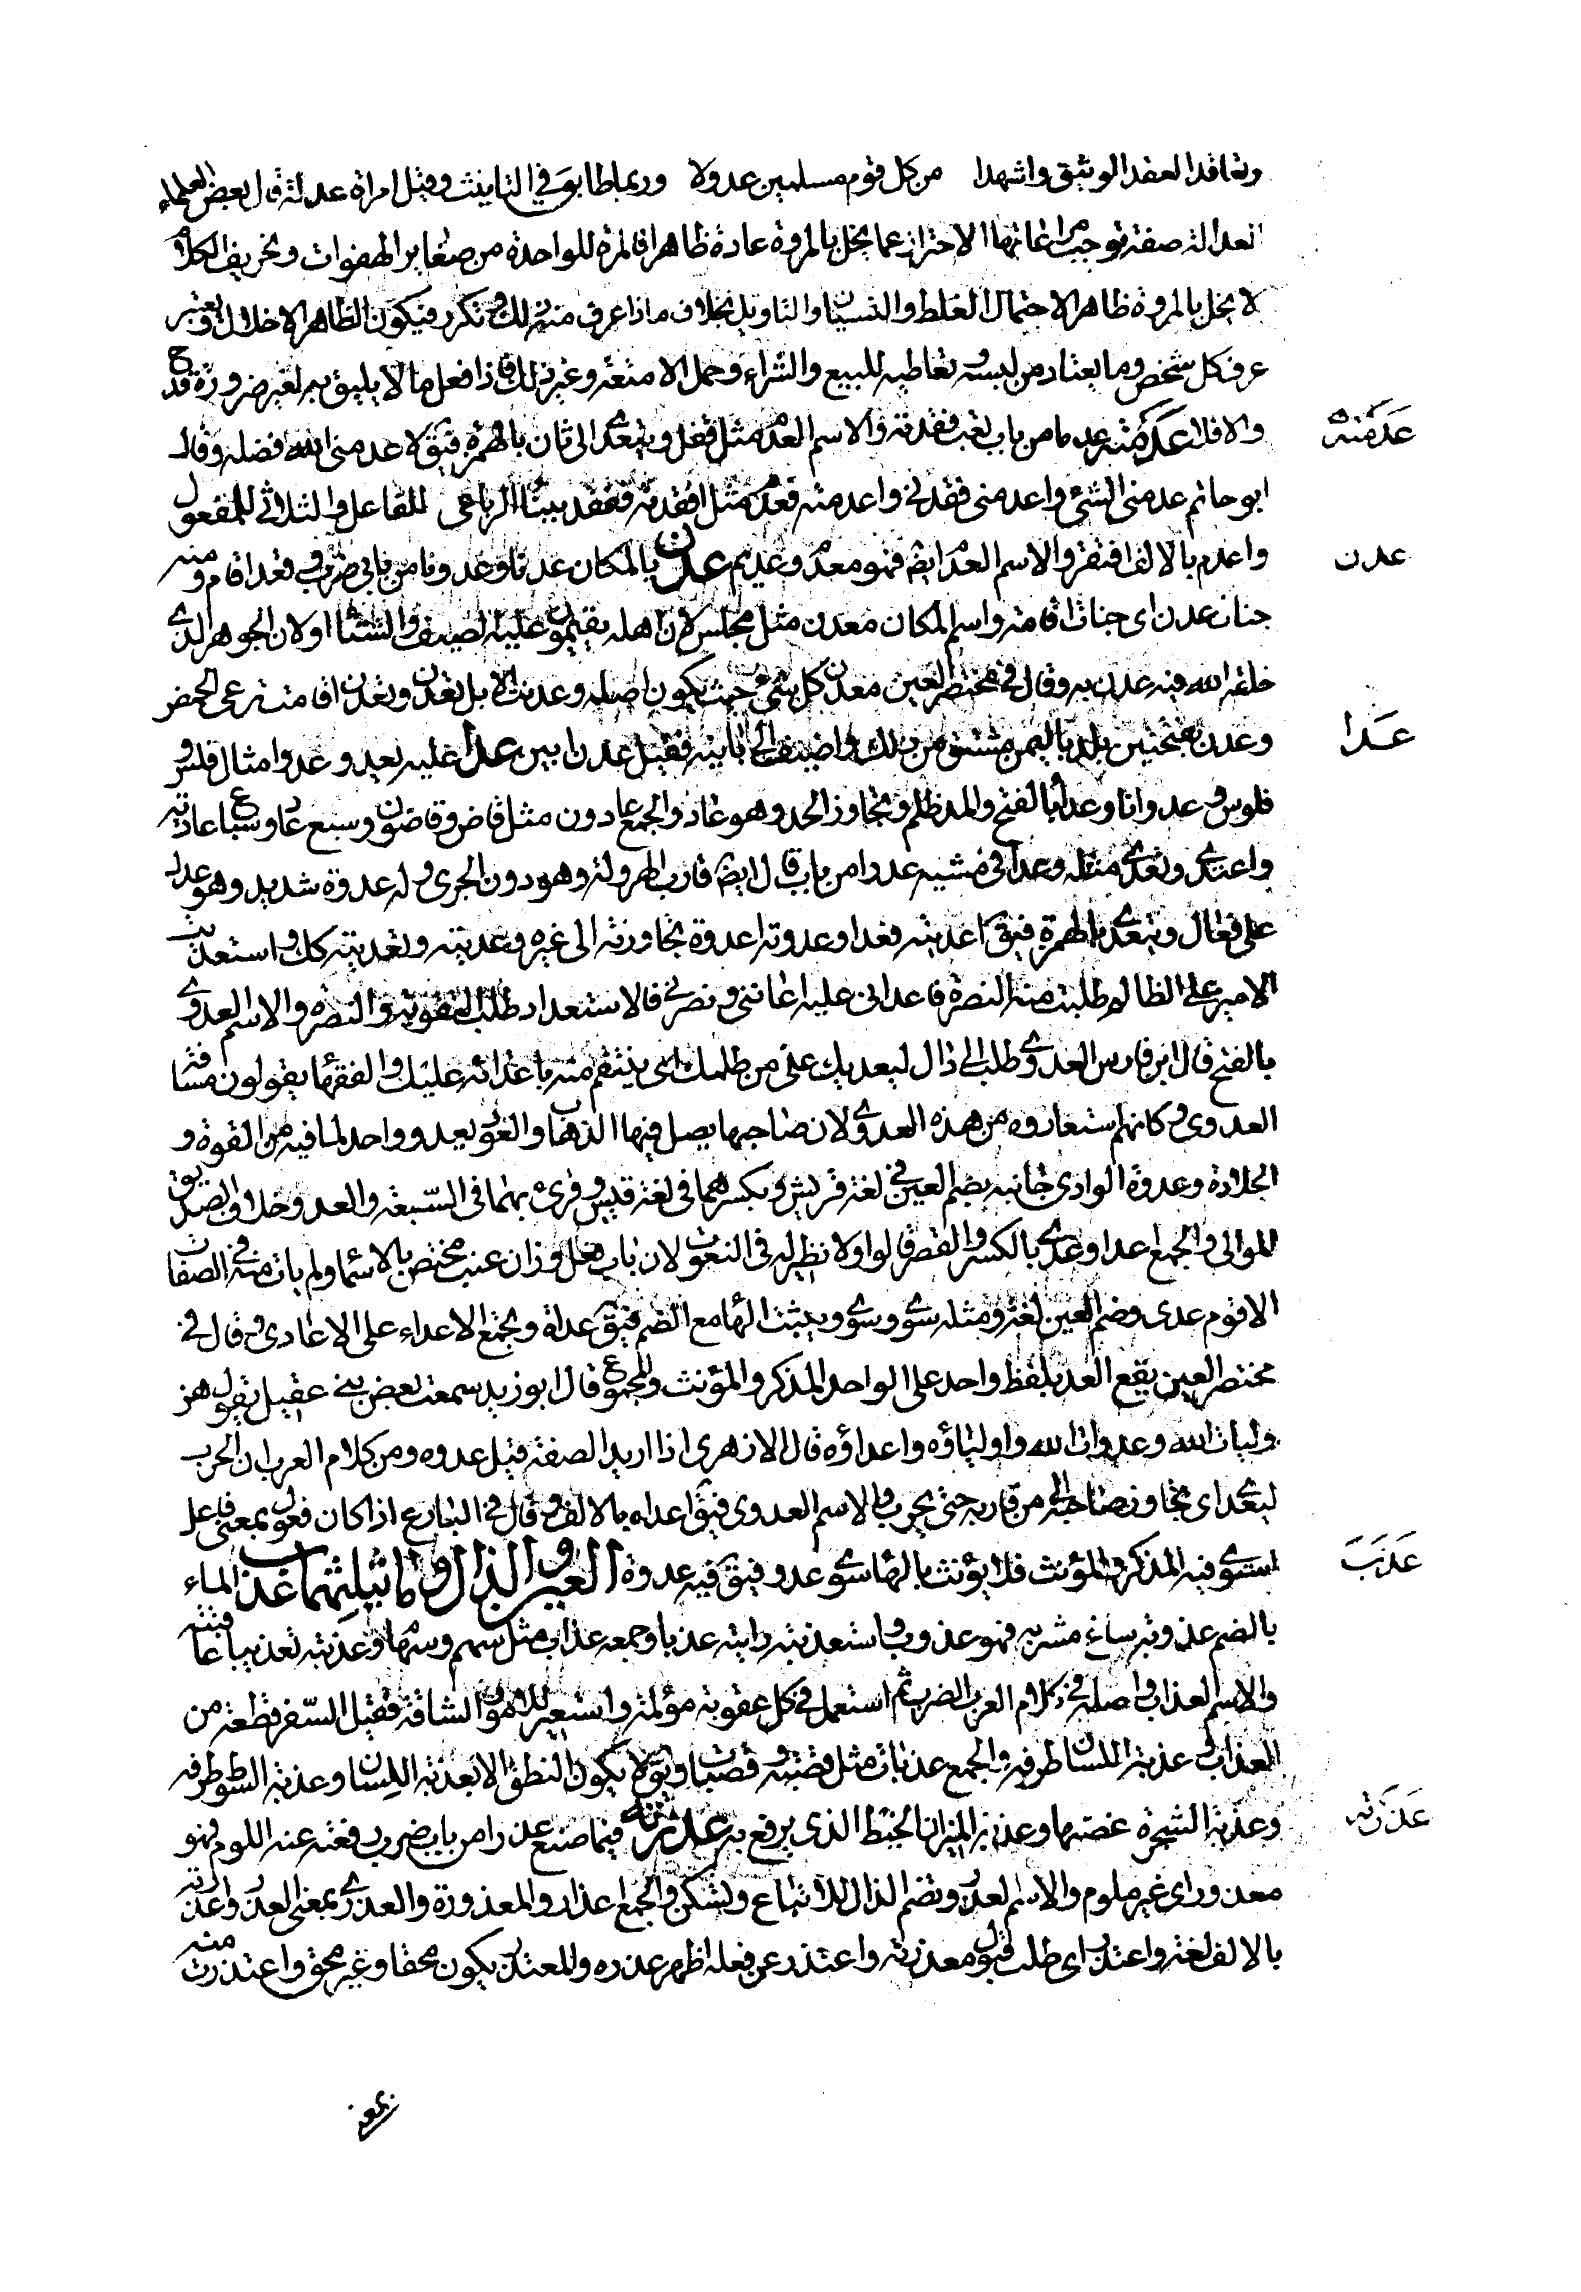 وتعاقدا العقد الوثيق واشهدا من كل قوم مسلمين عدولا وربما طابق في التانيث وقيل امراة عدلة قال بعض العلماء
العدالة صفة توجب مراعاتها الاحتراز عما يخل بالمروة عادة ظاهرا فالمرة الواحدة من صغاير الهفوات وتحريف الكلام
لا يخل بالمروة ظاهرا لاحتمال الغلط والنسيان والتاويل بخلاف ما اذا عرف منه ذلك وتكرر فيكون الظاهر الاخلال ويعتبر
عرف كل شخص وما يعتاد من لبسه وتعاطيه للبيع والشراء وحمل الامتعة وغير ذلك فاذا فعل ما لا يليق به لغير ضرورة قدح
عدمته
والا فلا عدمته عدما من باب تعب فقدته والاسم العدم مثل قفل ويتعدى الى ثان بالهمزة فيق لا اعدمني الله فضله وقال
ابو حاتم عدمني الشئ واعدمني فقدني واعدمته فعدم مثل افقدته ففقد ببناء الرباعي للفاعل والثلاثي للمفعول
عدن
واعدم بالالف افتقر والاسم العدم ايضا فهو معدم وعديم عدن بالمكان عدنا وعدونا من بابي ضرب وقعد اقام ومنه
جنات عدن اى جنات اقامة واسم المكان معدن مثل مجلس لان اهله يقيمون عليه الصيف والشتا او لان الجوهر الذى
خلقه الله فيه عدن به وقال في مختصر العين معدن كل شئ حيث يكون اصله وعدنت الابل تعدن وتعدن اقامت ترعى الحمض
عدا
وعدن بفتحتين بلد باليمن مشتق من ذلك واضيف الى بانيه فقيل عدن ابين عدا عليه يعدو عدوا مثال فلس و
فلوس وعدوانا وعدا بالفتح والمد ظلم وتجاوز الحد وهو عاد والجمع عادون مثل قاض وقاضون وسبع عاد وسباع عادية
واعتدى وتعدى مثله وعدا في مشيه عدوا من باب قال ايضا قارب الهرولة وهو دون الجرى وله عدوة شديد وهو عدا
على فعال ويتعدى بالهمزة فيق اعديته فعدا وعدوته اعدوة تجاوزته الى غيره وعديته وتعديته كك واستعديت
الامير على الظالم طلبت منه النصرة فاعداني عليه اعانني ونصرني فالاستعداد طلب التقوية والنصرة والاسم العدوى
بالفتح قال ابن فارس العدوى طلبك الى وال ليعديك على من ظلمك اى ينتقم منه باعتدائه عليك والفقها يقولون مسافة
العدوى وكانهم استعاروه من هذه العدوى لان صاحبها يصل فيها الذهاب والعود بعدو واحد لما فيه من القوة و
الجلادة وعدوة الوادى جانبه بضم العين في لغة قريش وبكسرها في لغة قيس وقرئ بهما في السبعة والعدو خلاف الصديق
الموالي والجمع اعدا وعدى بالكسر والقصر قالوا ولا نظير له في النعوت لان باب فعل وزان عنب مختص بالاسما ولم يات منه في الصفات
الا قوم عدى وضم العين لغة ومثله سوى وسوى ويثبت الها مع الضم فيق عداة ويجمع الاعداء على الاعادى وقال في
مختصر العين يقع العدو بلفظ واحد على الواحد المذكر والمؤنث والمجموع قال ابو زيد سمعت بعض بني عقيل يقول هن
وليات الله وعدوات الله واوليائه واعداؤه قال الازهرى اذا اريد الصفة قيل عدوه ومن كلام العرب ان الجرب
ليعدى اى يتجاوز صاحبه الى من قاربه حتى يجرب والاسم العدوى فيق اعداه بالالف وقال في البارع اذا كان فعول بمعنى فاعل
عذب
استوى فيه المذكر والمؤنث فلا يؤنث بالها سوى عدو فيق فيه عدوة العين والذال وما يثلثهما عذب الماء
بالضم عذوبة ساغ مشربه فهو عذب واستعذبته رايته عذبا وجمعه عذاب مثل سهم وسهام وعذبته تعذيبا عاقبته
والاسم العذاب واصله في كلام العرب الضرب ثم استعمل في كل عقوبة مؤلمة واستعير للامور الشاقة فقيل السفر قطعة من
العذاب وعذبة اللسان طرفه والجمع عذبات مثل قصبة وقصبات ويق لا يكون النطق الا بعذبة اللسان وعذبة السوط طرفه
عذرته
وعذبة الشجرة غصنها وعذبة الميزان الخيط الذى يرفع به عذرته فيما صنع عذرا من باب ضرب رفعت عنه اللوم فهو
معذور اى غير ملوم والاسم العذر وتضم الذال للاتباع وتسكن والجمع اعذار والمعذرة والعذرى بمعنى العذر واعذرته
بالالف لغة واعتذر اى طلب قبول معذرته واعتذر عن فعله اظهر عذره والمعتذر يكون محقا وغير محق واعتذرت منه